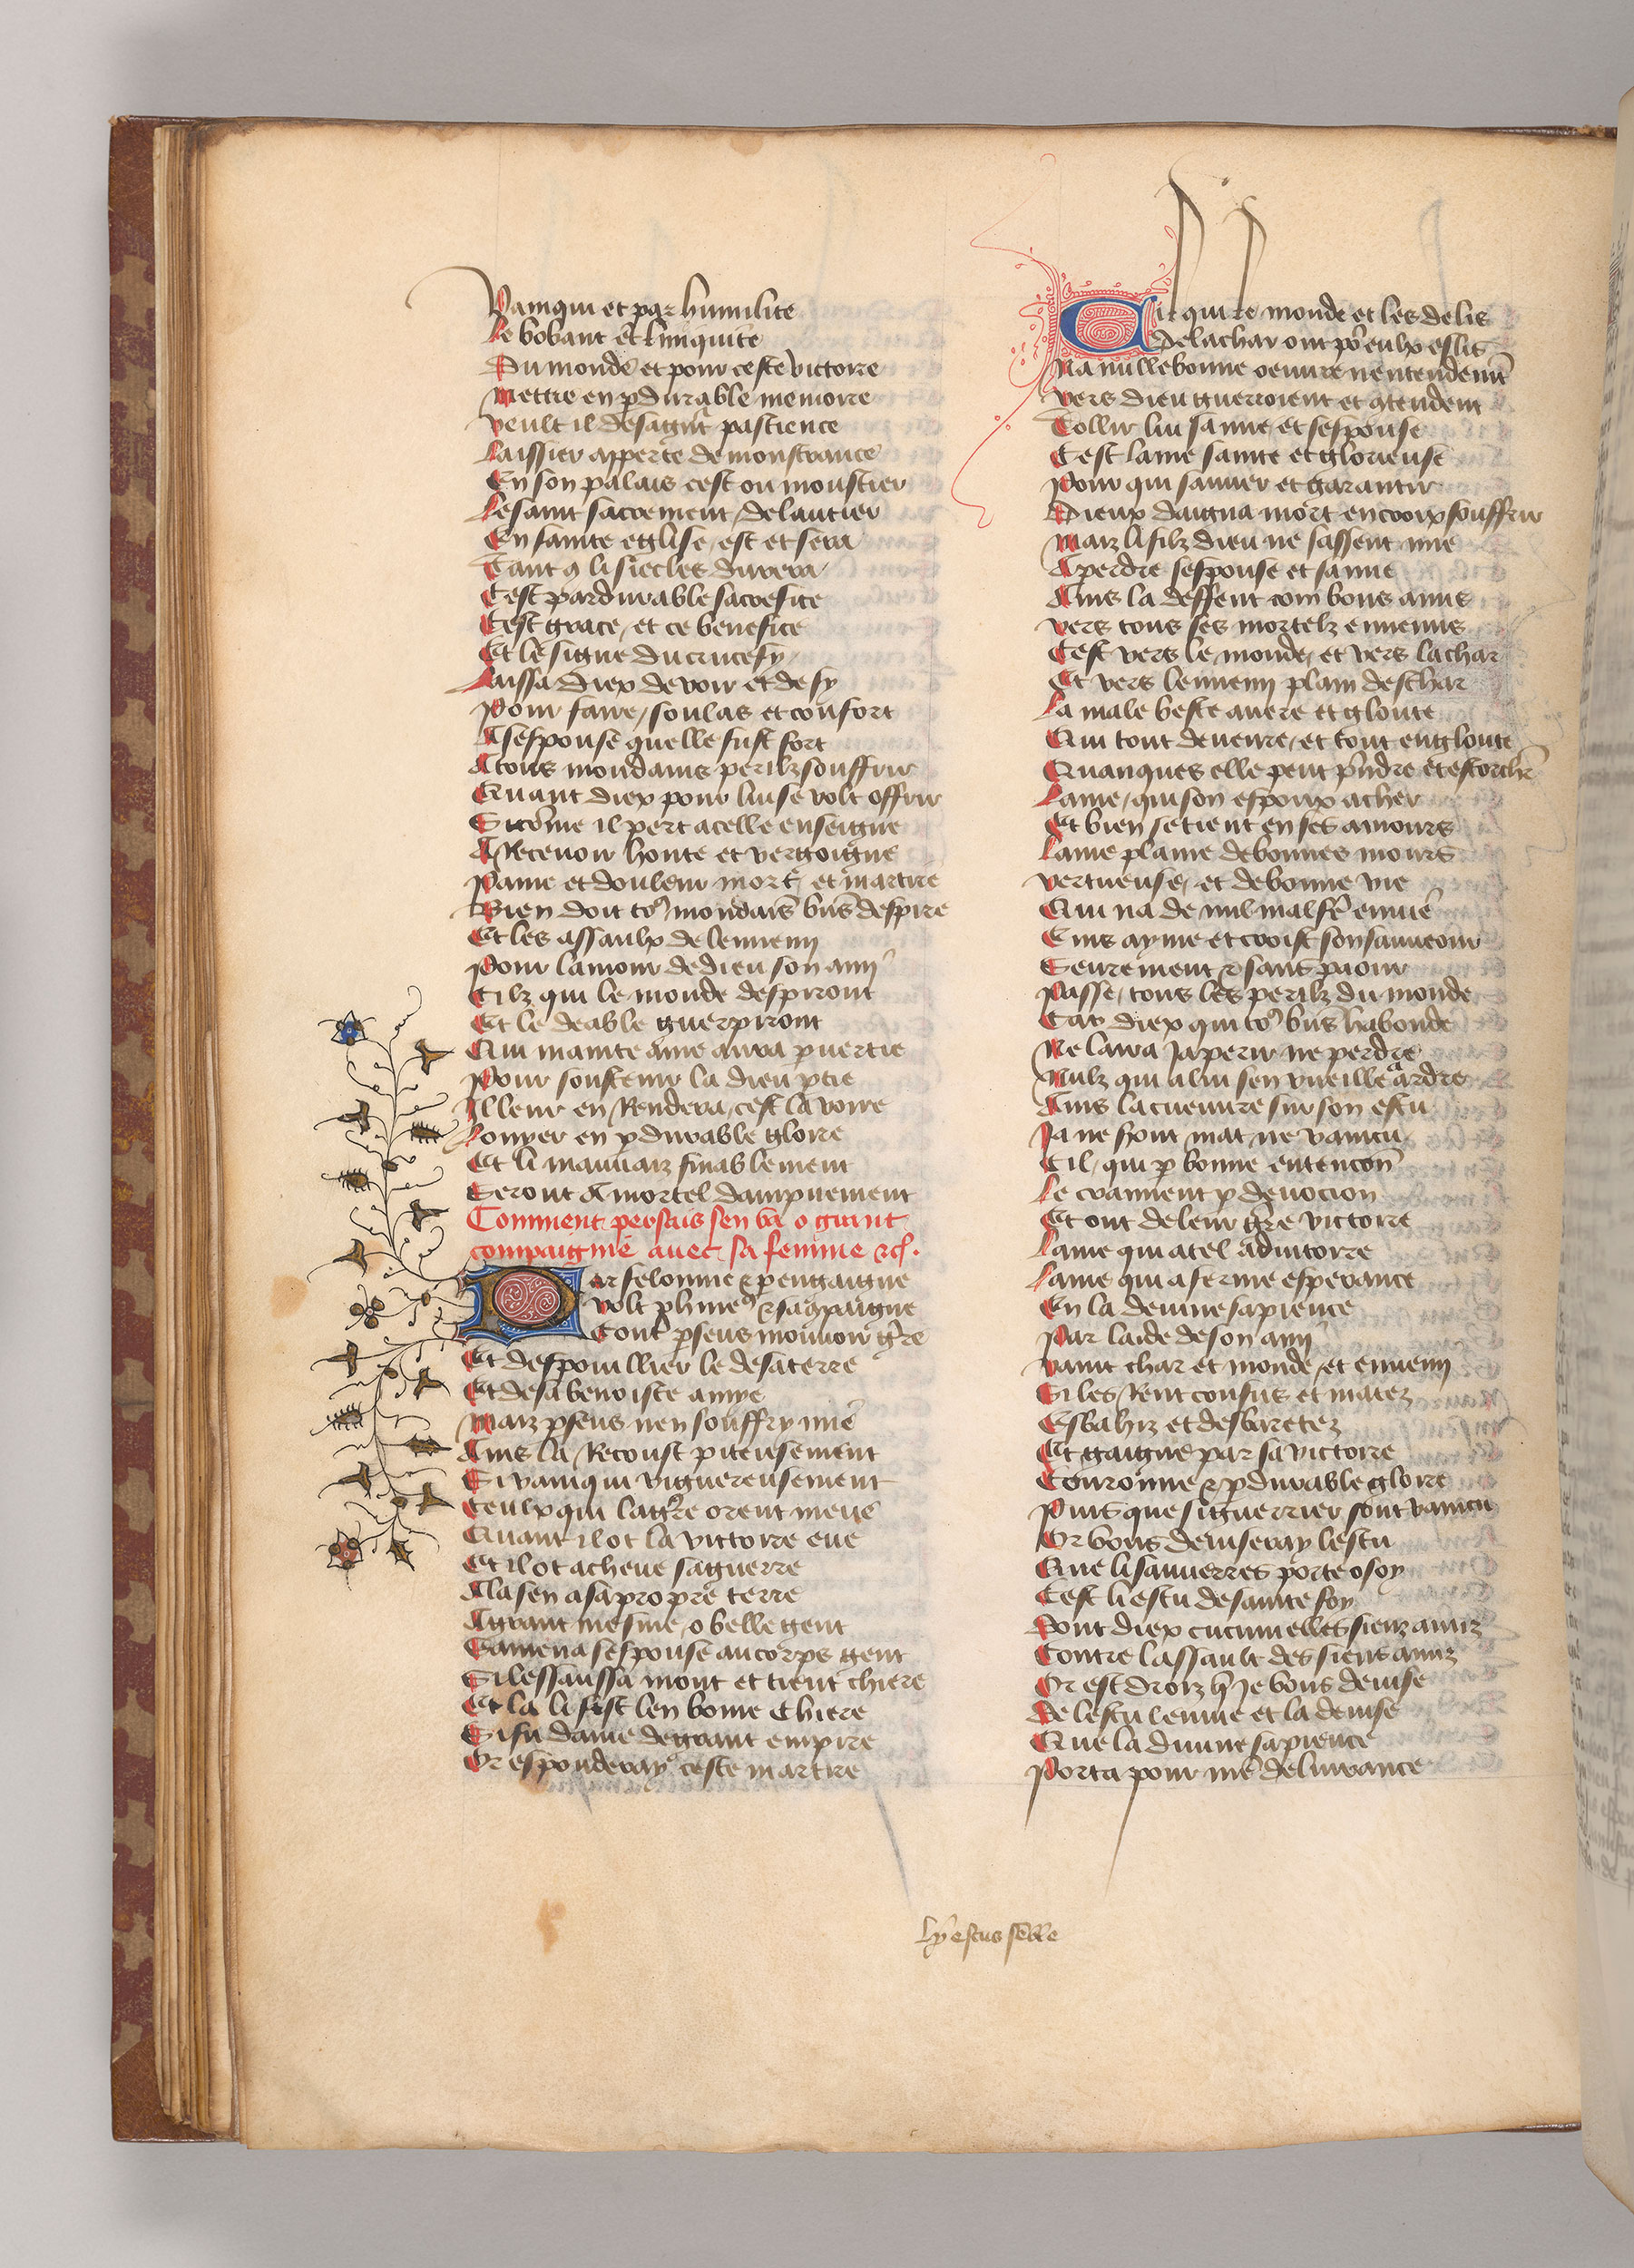 Vainqui et par humilite
Le bobant et liniquite
Du monde et pour ceste victoire
Mettre en pdurable memoire
Veult il de sa grant pascience
Laissier apperte demonstrance
En son palais cest ou moustier
Le saint sacrement de lautier
En sainte eglise est et sera
Tant q̄ li siecles durera
Cest pardurable sacrefice
Cest grace et ce benefice
Et le signe du crucefy
Laissa diex de voir et de fy
Pour faire soulas et confort
A sespouse quelle fust fort
A tous mondains perilz souffrir
Quant diex pour lui se volt offrir
Si cōme il pert a celle enseigne
A Recevoir honte et vergoigne
Paine et douleur mort et martire
Bien doit to9 mondais bn̄s despire
Et les assaulx de lennemy
Pour lamour de dieu son amy
Cilz qui le monde despiront
Et le deable guerpiront
Qui mainte ame aura puertie
Pour soustenir la dieu ptie
Il leur en Rendera cest la voire
Louyer en pdurable gloire
Et li mauvaiz finablement
Seront a mortel dampnement
Comment perseus sen va o grant
compaignie avec sa femme &c.
Par felonnie & p engaigne
Volt phineus & sa qpaigne
Contr pseus mouvoir grre
Et despouillier le de sa terre
Et de sa benoiste amye
Maiz pseus nen souffry mie
Ains la Recoust piteusement
Si vainqui viguereusement
Ceulx qui la grre orent meue
Quant il ot la victoire eue
Et il ot acheve sa guerre
Ala sen a sa propre terre
A grant mesnie o belle gent
Samena sespouse au corps gent
Si lessaussa mont et tient chiere
Et la li fist len bonne chiere
Si fu dame de grant empire
Or esponderay ceste martire
Cil qui le monde et les delis
De la char ont por eulx eslis
Na nulle bonne oeuvre nentendent
Vers dieu guerroient et qtendent
Tollir lui samie et sespouse
Cest lame sainte et glorieuse
Pour qui sauver et garantir
Dieux daigna mort en croix souffrir
Maiz li filz dieu ne sassent mie
A perdre sespouse et samie
Ains la deffent com bons amis
Vers tous ses mortelz ennemis
Cest vers le monde et vers la char
Et vers lennemy plain deschar
La male beste avere et gloute
Qui tout deveure et tout engloute
Quanques elle peut pndre et escorchr
Lame qui son espoux a cher
Et bien se tient en ses amours
Lame plaine de bonnes mours
Vertueuse et de bonne vie
Qui na de nul mal fe envie
Eins ayme et croist son sauveour
Seurement & sans paour
Passe tous les perilz du monde
Car diex qui to9 bns habonde
Ne laira Ja perir ne perdre
Nulz qui a lui sen vueille ardre
Ains la cueuvre sur son escu
Ja ne seront mat ne vaincu
Cil qui p bonne entencon
Le craiment p devocion
Et ont de leur grre victoire
Lame qui a tel adiutoire
Lame qui a ferme esperance
En la devine sapience
Par laide de son amy
Vaint char et monde et ennemy
Si les Rent confus et matez
Esbahiz et desbaretez
Et gaigne par sa victoire
Couronne & pdurable gloire
Puis que si guerrier sont vaincu
Or vous deviseray lescu
Que li sauverres porte o soy
Cest li escu de sainte foy
Dont diex cucuruelles siens amiz
Contre lassault des siens amiz
Or est droiz q̄ Je vous devise
De lescu lenvie et la devise
Que la divine sapience
Porta pour nre delivrance
Ly escus semble